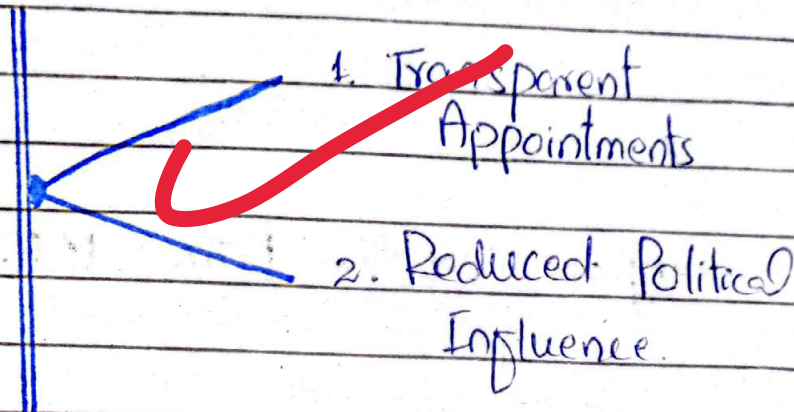 1. Transparent
Appointments
2. Reduced Political
Influence.